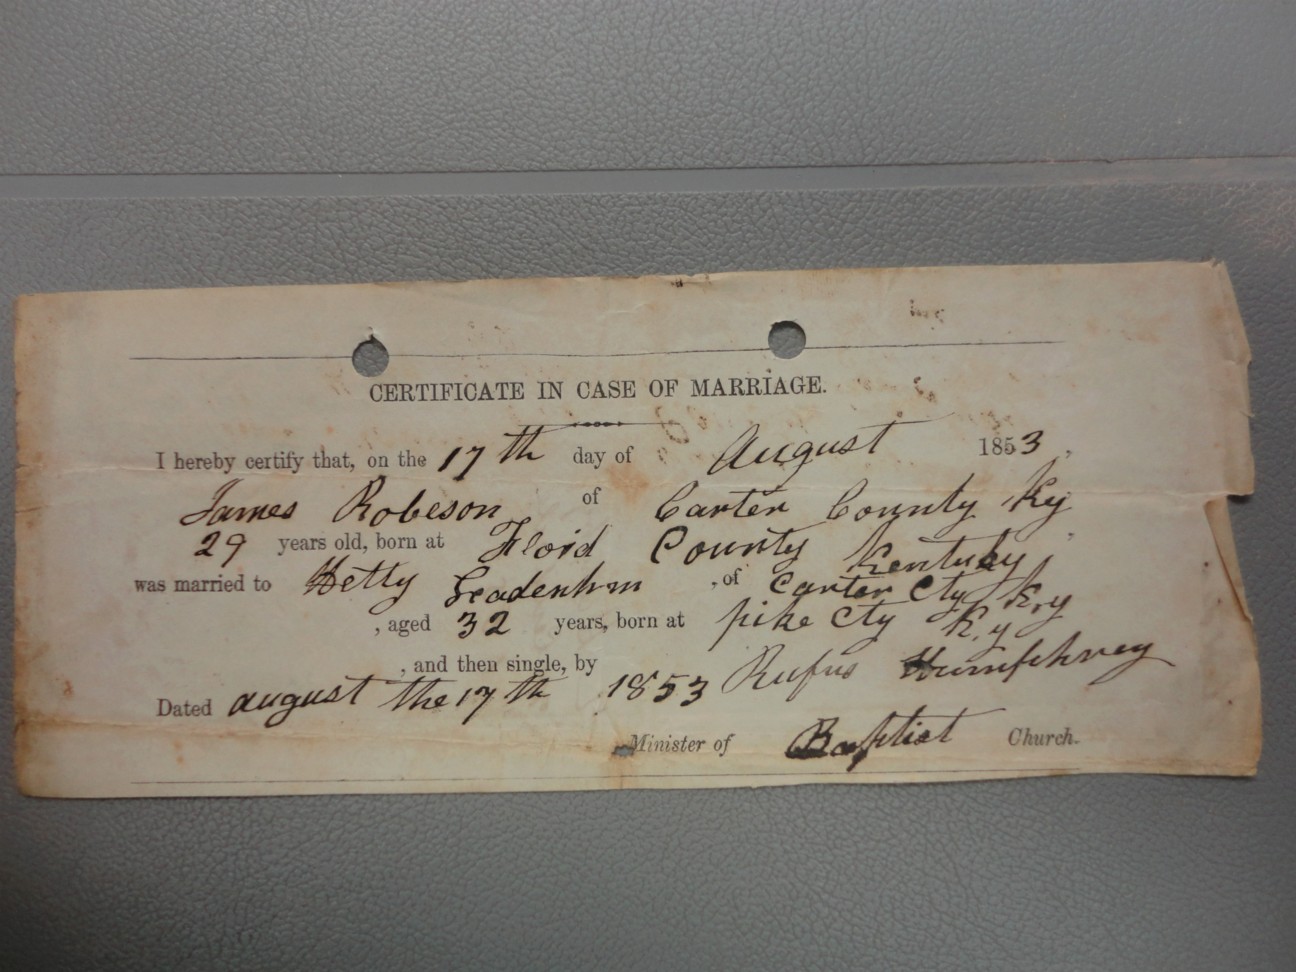 CERTIFICATE IN CASE OF MARRIAGE.
I hereby certify that, on the 17th day of August 1853,
James Robeson of Carter County Ky
29 years old, born at Floid County Kentuky,
was married to Hetty Leadenhm, of Carter Cty Ky
, aged 32 years, born at pike Cty Ky
, and then single, by Rufus Humphrey
Dated august the 17th 1853
Minister of Baptist Church.